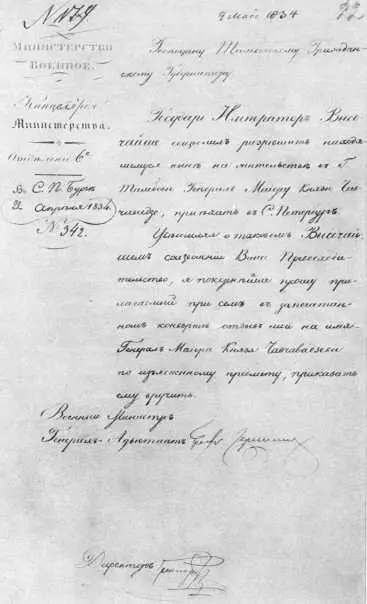 9 Мая 1834
Министерство
Военное.
Канцелярия
Министерства.
Отделение 6е
в С. П. Бург
Апреля 1834.
№ 342.
Господину Тамбовскому Граждан-
скому Губернатору.
Государь Император Высо-
чайше соизволил разрешить находя-
щемуся ныне на жительстве в Г.
Тамбове Генерал Майору Князю Чав-
чавадзе, приехать в С. Петербург.
Уведомляя о таковом Высочай-
шем соизволении Ваше Превосходи-
тельство, я покорнейше прошу при-
лагаемый при сем в запечатан-
ном конверте отзыв мой на имя
Генерал Майора Князя Чавчавадзе
по изъясненному предмету, приказать
ему вручить.
Военный Министр
Генерал-Адъютант Граф
Директор